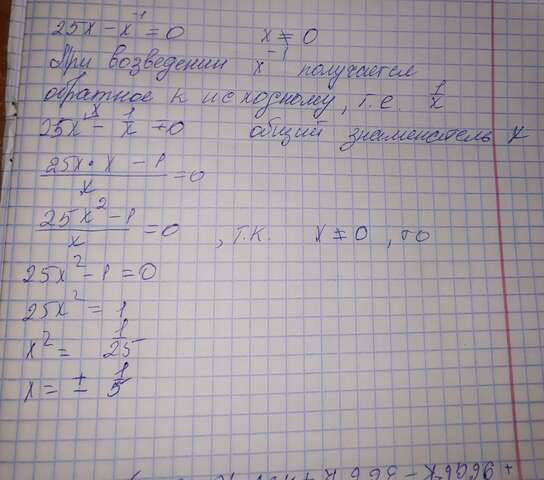 25x - x⁻¹ = 0 x ≠ 0
При возведении x⁻¹ получается
обратное к исходному, т.е. 1/x
25x^x - 1/x = 0 общий знаменатель x
(25x · x - 1)/x = 0
(25x² - 1)/x = 0, т.к. x ≠ 0, то
25x² - 1 = 0
25x² = 1
x² = 1/25
x = ± 1/5